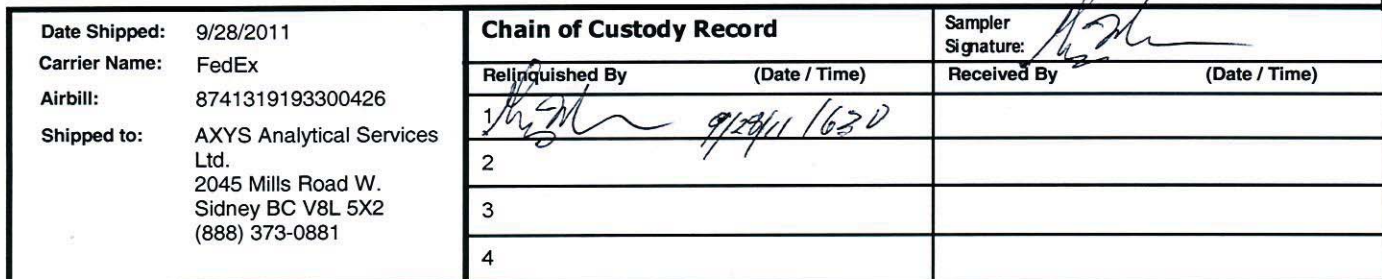 Date Shipped: 9/28/2011
Carrier Name: FedEx
Airbill: 8741319193300426
Shipped to: AXYS Analytical Services
Ltd.
2045 Mills Road W.
Sidney BC V8L 5X2
(888) 373-0881
Chain of Custody Record
Sampler
Signature:
Relinquished By (Date / Time) Received By (Date / Time)
1 9/28/11 1630
2
3
4